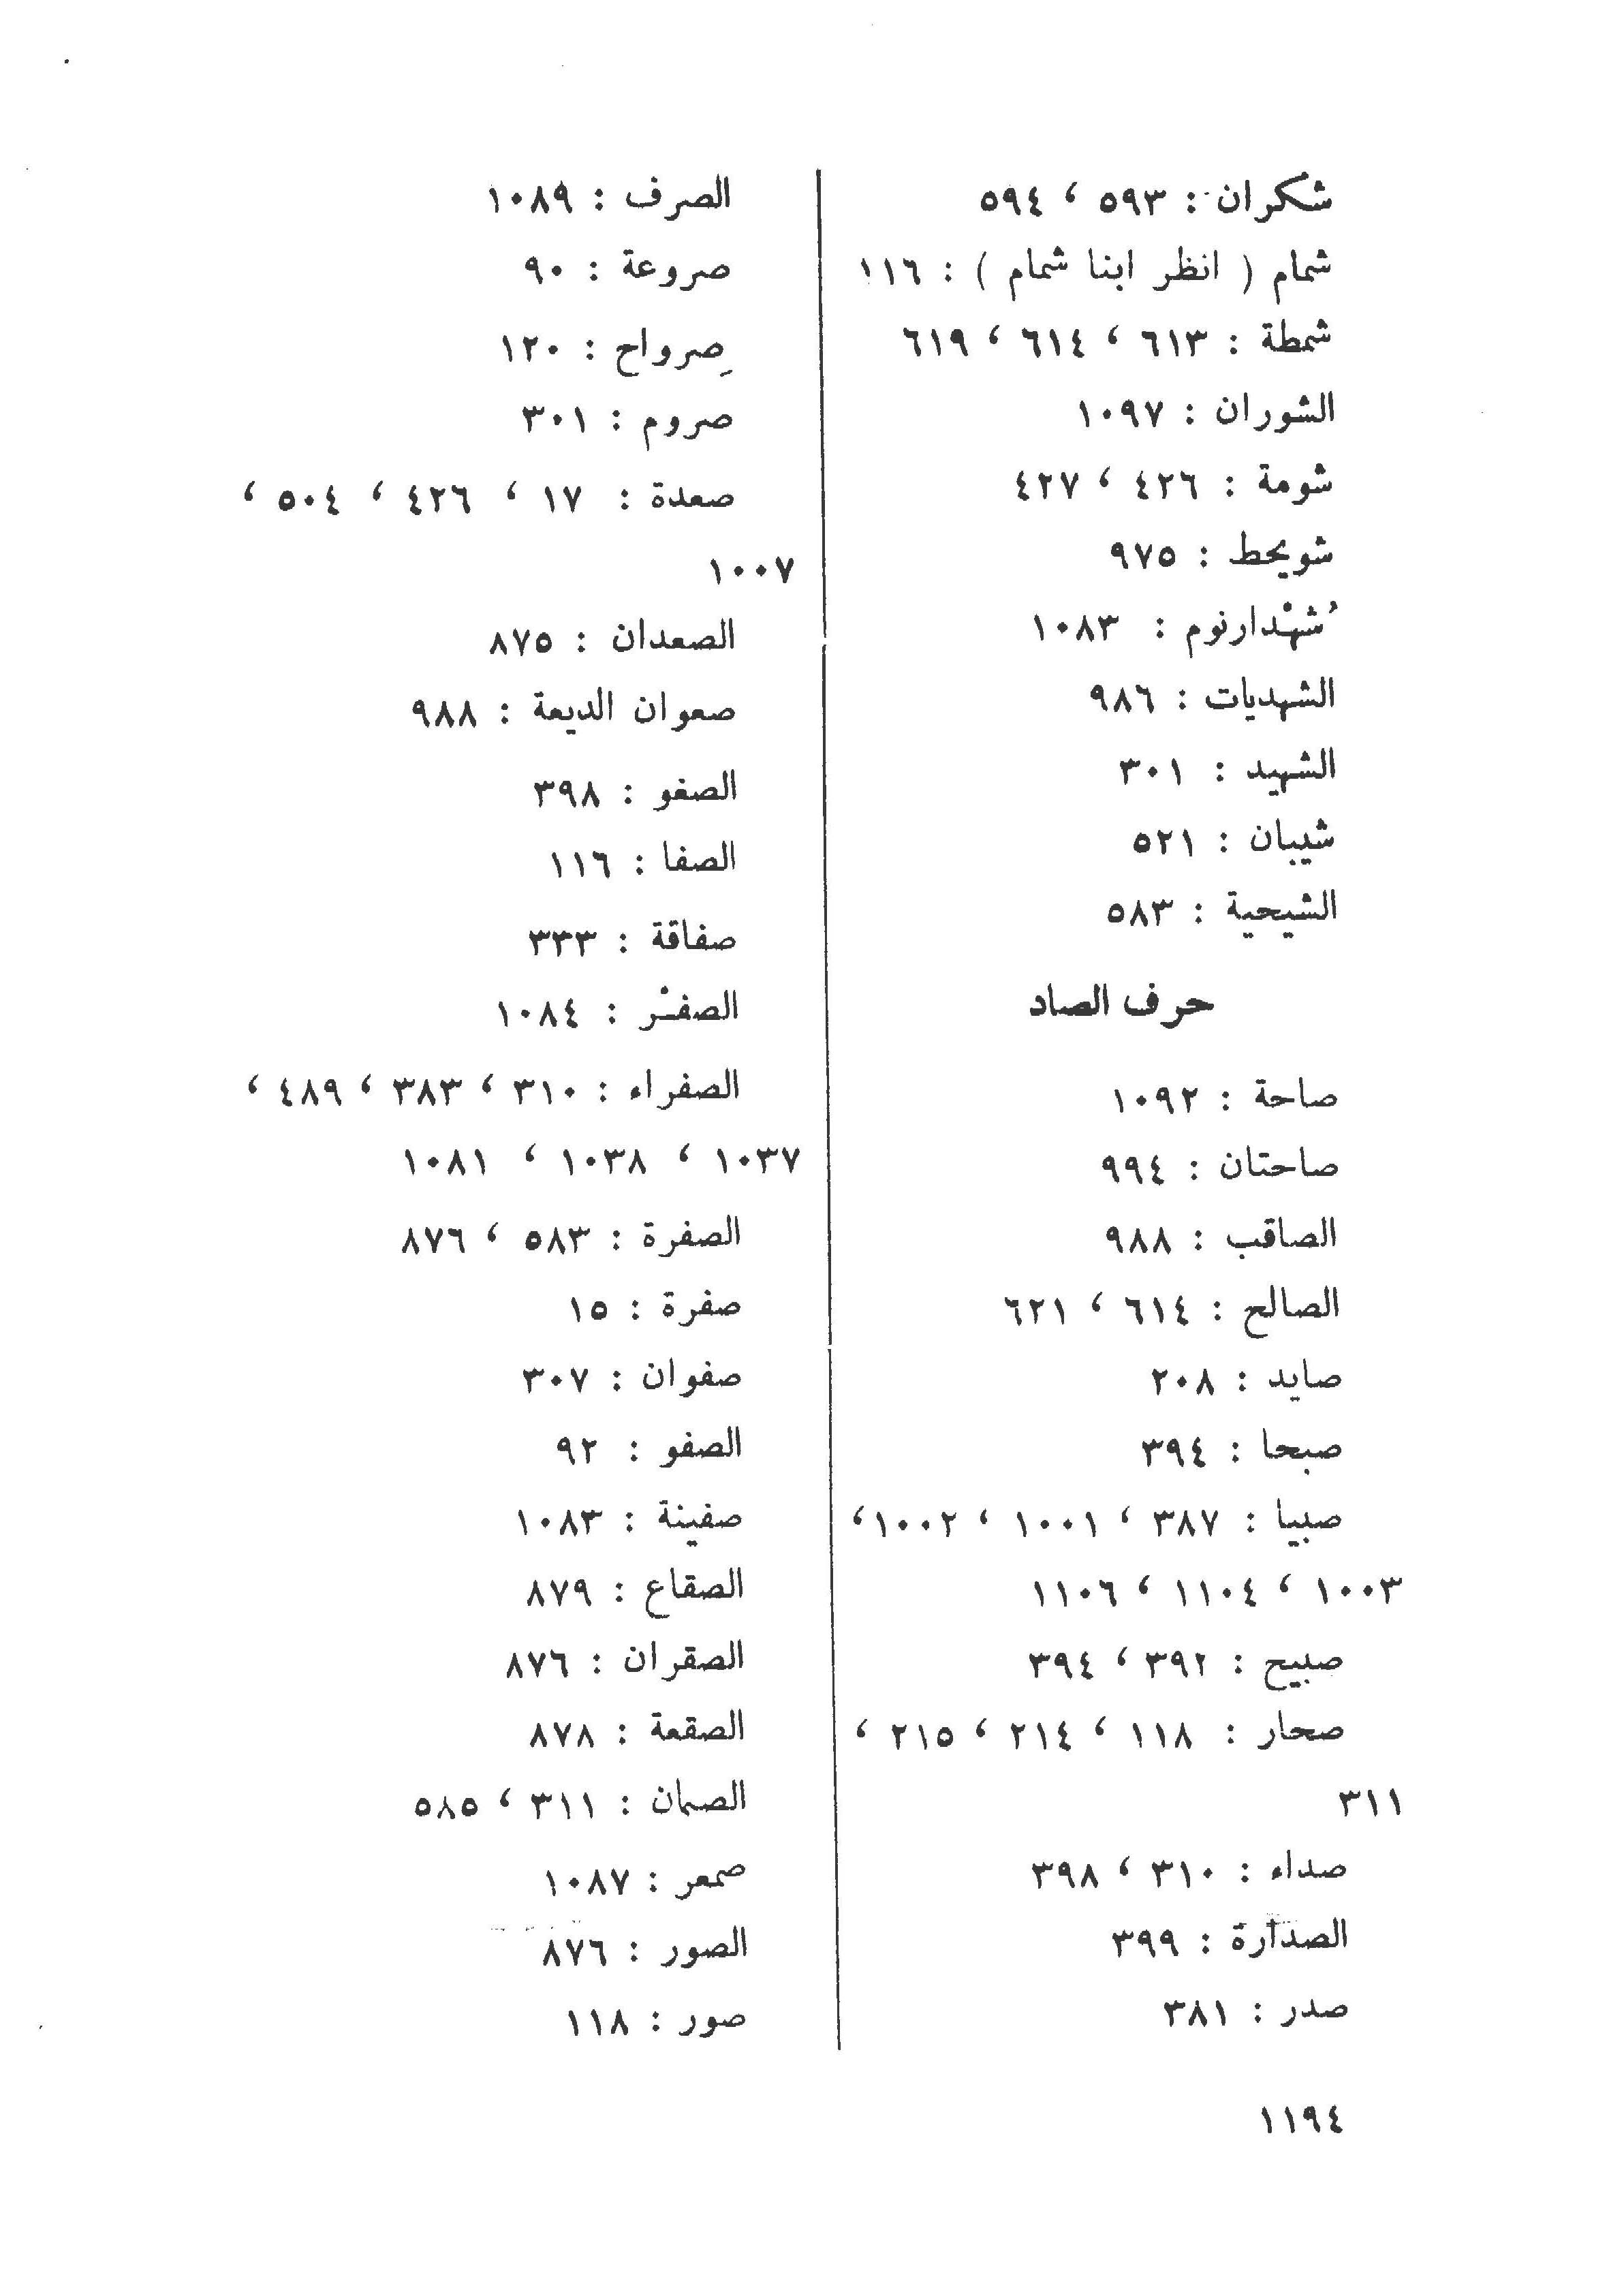 شكران : ٥٩٣ ، ٥٩٤
شمام ( انظر ابنا شمام ) : ١١٦
شمطة : ٦١٣ ، ٦١٤ ، ٦١٩
الشوران : ١٠٩٧
شومة : ٤٢٦ ، ٤٢٧
شويحط : ٩٧٥
شُهْدارنوم : ١٠٨٣
الشهديات : ٩٨٦
الشهيد : ٣٠١
شيبان : ٥٢١
الشيحية : ٥٨٣
حرف الصاد
صاحة : ١٠٩٢
صاحتان : ٩٩٤
الصاقب : ٩٨٨
الصالح : ٦١٤ ، ٦٢١
صايد : ٢٠٨
صبحا : ٣٩٤
صبيا : ٣٨٧ ، ١٠٠١ ، ١٠٠٢،
١٠٠٣ ، ١١٠٤ ، ١١٠٦
صبيح : ٣٩٢ ، ٣٩٤
صحار : ١١٨ ، ٢١٤ ، ٢١٥ ،
٣١١
صداء : ٣١٠ ، ٣٩٨
الصدارة : ٣٩٩
صدر : ٣٨١
الصرف : ١٠٨٩
صروعة : ٩٠
صِرواح : ١٢٠
صروم : ٣٠١
صعدة : ١٧ ، ٤٢٦ ، ٥٠٤ ،
١٠٠٧
الصعدان : ٨٧٥
صعوان الديعة : ٩٨٨
الصغو : ٣٩٨
الصفا : ١١٦
صفاقة : ٣٣٣
الصفْر : ١٠٨٤
الصفراء : ٣١٠ ، ٣٨٣ ، ٤٨٩ ،
١٠٣٧ ، ١٠٣٨ ، ١٠٨١
الصفرة : ٥٨٣ ، ٨٧٦
صفرة : ١٥
صفوان : ٣٠٧
الصفو : ٩٢
صفينة : ١٠٨٣
الصقاع : ٨٧٩
الصقران : ٨٧٦
الصقعة : ٨٧٨
الصمان : ٣١١ ، ٥٨٥
صمعر : ١٠٨٧
الصور : ٨٧٦
صور : ١١٨
١١٩٤